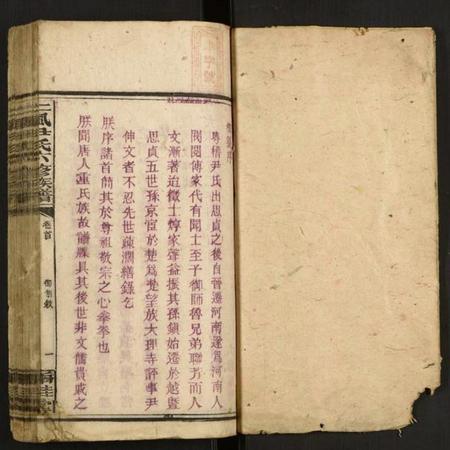 御製序
粵稽尹氏出思貞之後自晉遷河南遂爲河南人
閥閱傳家代有聞士至子御師魯兄弟聯考而人
文漸著迨徵士焞家聲益振其孫鎮始遷於越暨
思貞五世孫京宦於楚爲楚望族大理寺評事尹
伸文者不忍先世疎濶繕錄乞
朕序諸首簡其於尊祖敬宗之心拳拳也
朕聞唐人重氏族故譜牒具其後世非文儒貴戚之
上風尹氏六修族譜
卷首
御製敘
一